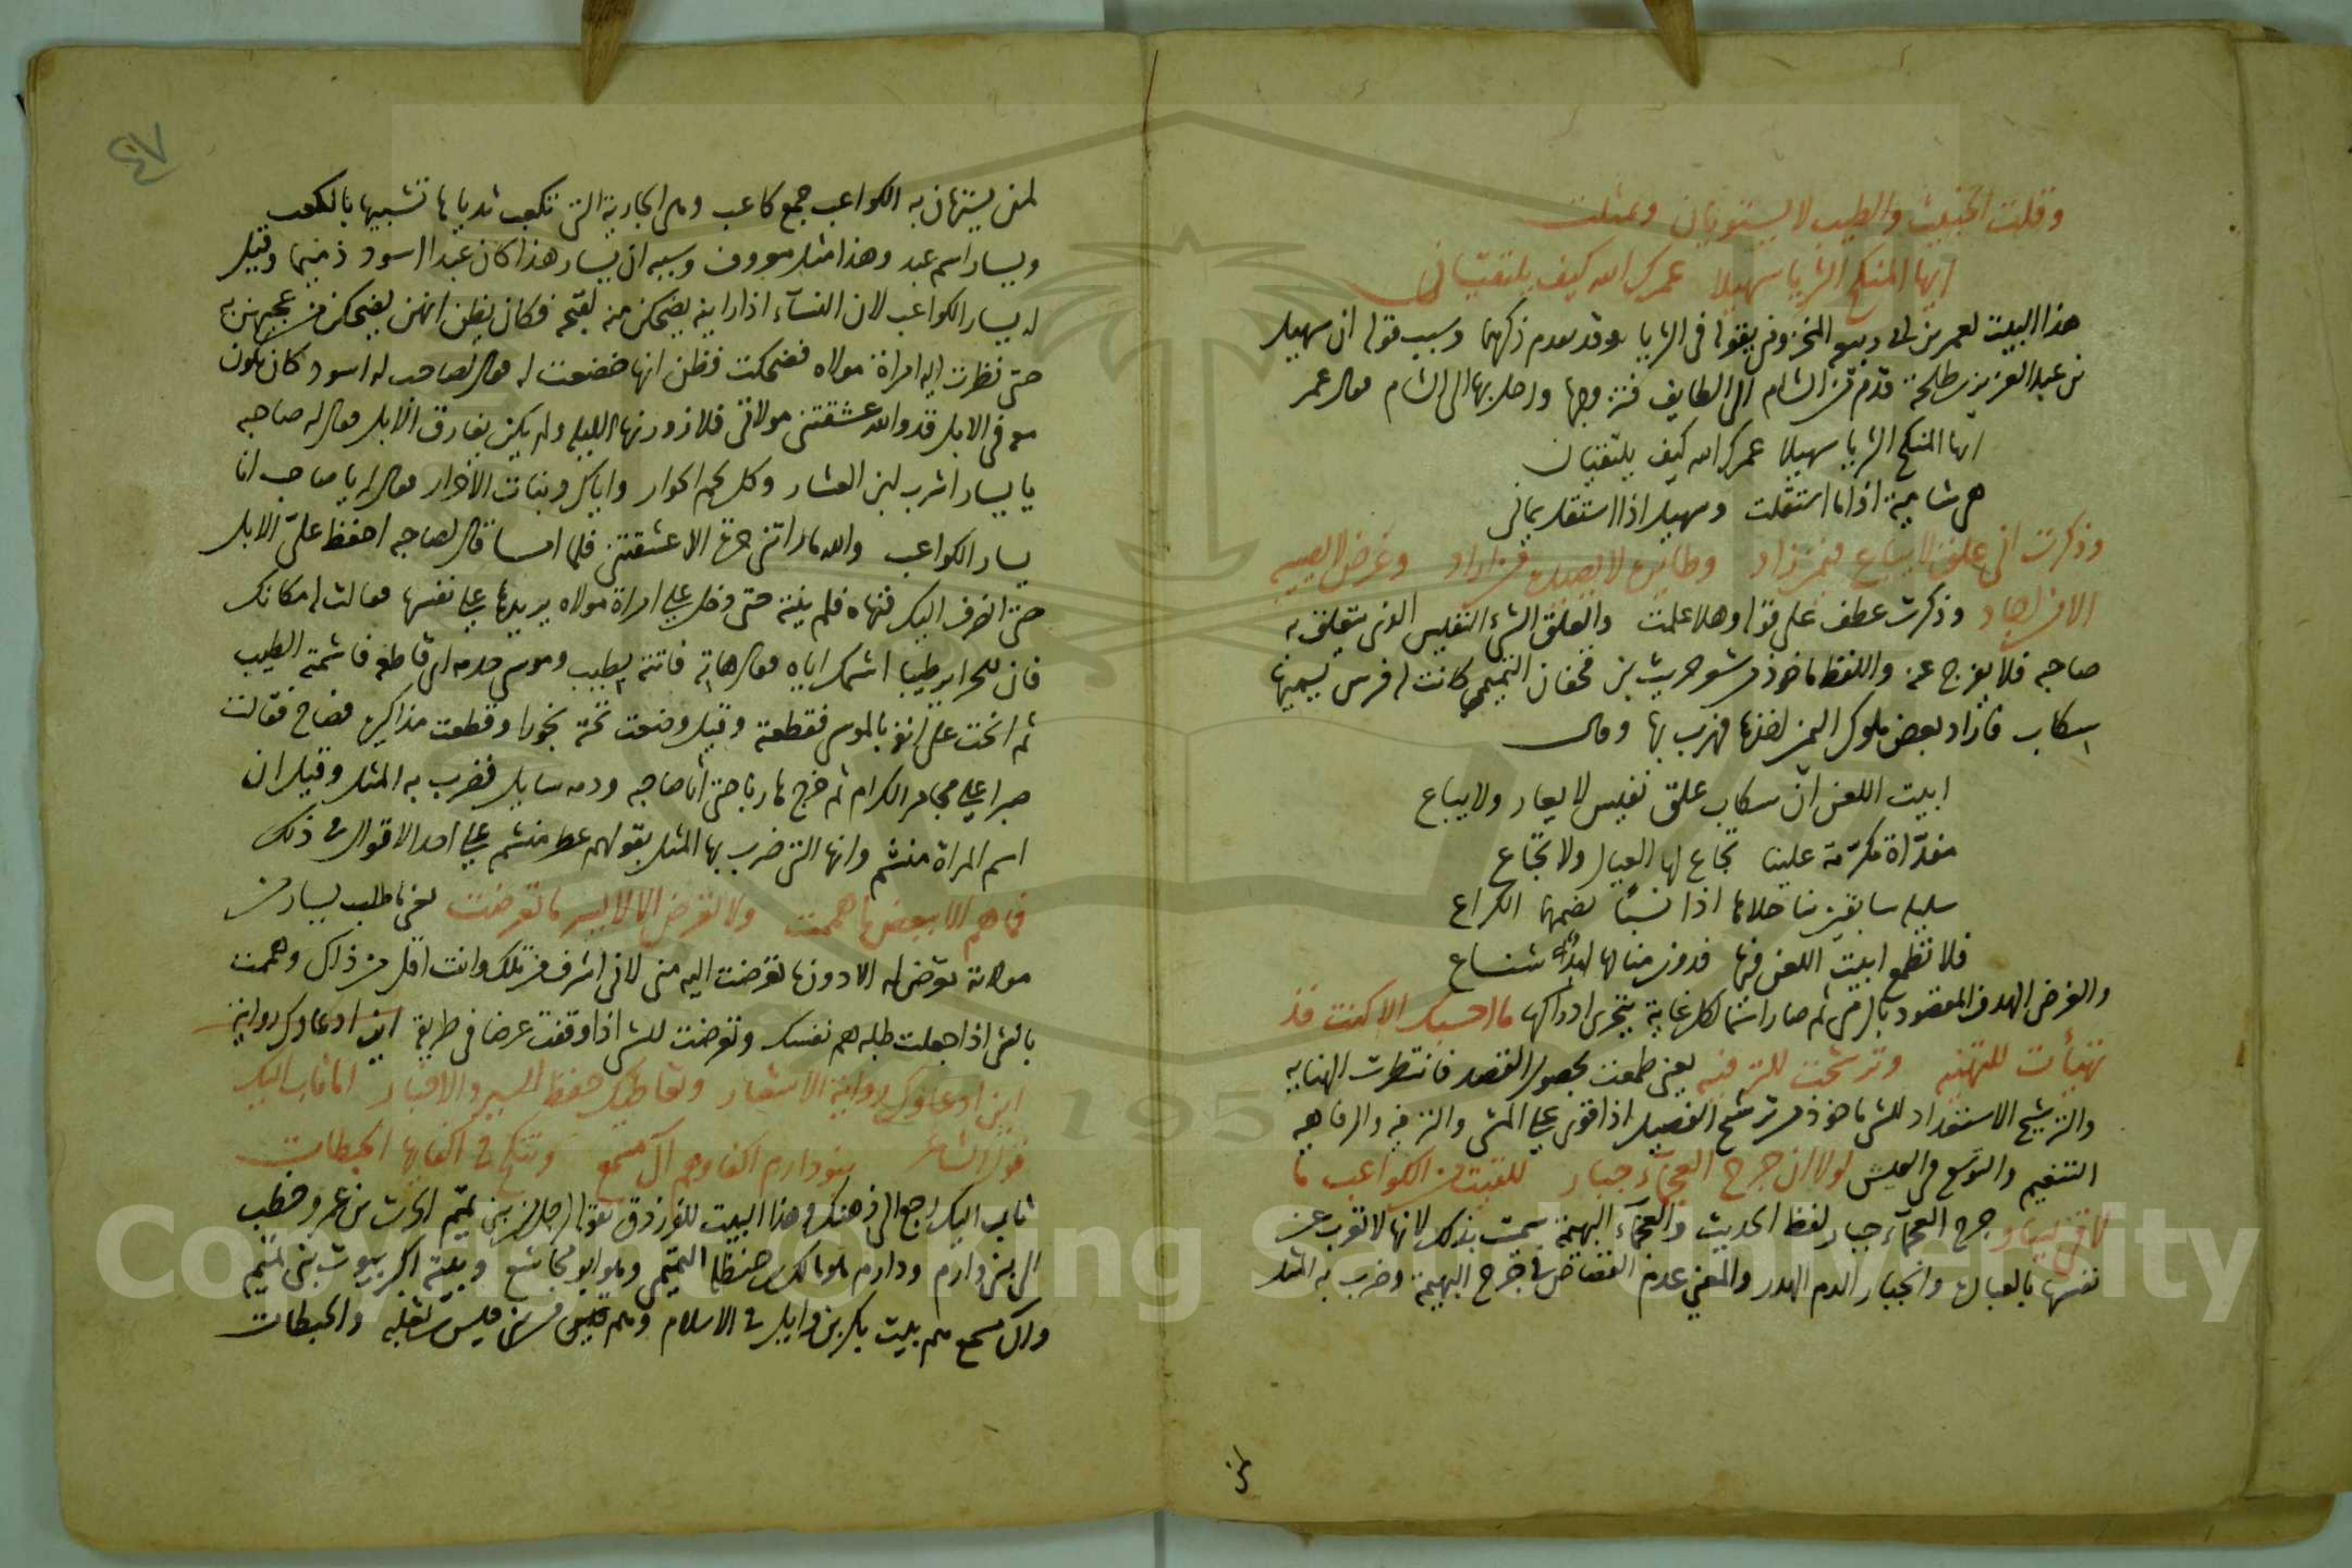 وقلت الخبيث والطيب لا يستويان وتمثلت
ايها المنكح الثريا سهيلا عمرك الله كيف يلتقيان
هذا البيت لعمر بن ابي ربيعه المخزومي يقوله في الثريا وقد تقدم ذكرهما وسبب قوله ان سهيل
بن عبد العزيز بن طلحة قدم من الشام الى الطايف فتزوجها ورحل بها الى الشام فقال عمر
ايها المنكح الثريا سهيلا عمرك الله كيف يلتقيان
هي شامية اذا ما استقلت وسهيل اذا استقل يماني
وذكرت اني علق لا يباع فيمن زاد وطاير لا يصيده من اراد وغرض لا يصيبه
الا من اجاد وذكرت عطف على قوله وهلا علمت والعلق الشيء النفيس الذي يتعلق به
صاحبه فلا يفرج عنه واللفظ ماخوذ من شعر حريث بن قحفان التميمي كانت له فرس يسميها
سكاب فاراد بعض ملوك اليمن اخذها فهرب بها وقال
ابيت اللعن ان سكاب علق نفيس لا يعار ولا يباع
مفداة مكرمة علينا تجاع لها العيال ولا تجاع
سليلة سابقين تناجلاها اذا نسبا يضمهما الكراع
فلا تطمع ابيت اللعن فيها فدون منالها شناع
والغرض الهدف المقصود بالرمي ثم صار اسما لكل غاية يتحرى ادراكها ما احسبك الا كنت قد
تهيأت للتهنيه وترشحت للترفيه يعني طمعت بحصول القصد فانتظرت الهنايه
والترشيح الاستعداد للشي ماخوذ من ترشح الفصيل اذا قوي على المشي والترفيه والرفاهيه
التنعيم والتوسع في العيش لولا ان جرح العجماء جبار للقيت من الكواعب ما
لاقى يسار جرح العجماء جبار لفظ الحديث والعجماء البهيمة سميت بذلك لانها لا تعرب عن
نفسها بالعباره والجبار الدم الهدر والمعني عدم القصاص في جرح البهيمة وضرب به المثل
لمن
لمن يستهان به الكواعب جمع كاعب وهي الجارية التي تكعب ثدياها تشبيها بالكعب
ويسار اسم عبد وهذا مثل معروف وسببه ان يسار هذا كان عبدا اسود ذميما وقيل
له يسار الكواعب لان النساء اذا راينه يضحكن منه لقبحه فكان يظن انهن يضحكن من عجبهن به
حتى نظرت اليه امراة مولاه فضحكت فظن انها خضعت له فقال لصاحب له اسود كان يكون
معه في الابل قد والله عشقتني مولاتي فلازورنها الليله ولم يكن يفارق الابل فقال له صاحبه
يا يسار اشرب لبن العشار وكل لحم الحوار واياك وبنات الاحرار فقال له يا صاحب انا
يسار الكواعب والله ما راتني حرة الا عشقتني فلما امسا قال لصاحبه احفظ علي الابل
حتى انصرف اليك فنهاه فلم ينته حتى دخل على امراة مولاه يريدها على نفسها فقالت له مكانك
فان للحراير طيبا اشمك اياه فقال هاته فاتته بطيب وموسى خدمه اي قاطعه فاشمته الطيب
ثم انحت على انفه بالموسى فقطعته وقيل وضعت تحته بخورا وقطعت مذاكيره فصاح فقالت
صبرا على مجامر الكرام ثم خرج هاربا حتى اتا صاحبه ودمه سايل فضرب به المثل وقيل ان
اسم المراة منشم وانها التي ضرب بها المثل بقولهم عطر منشم على احد الاقوال في ذلك
فما هم الا ببعض ما هممت ولا تعرض الا لايسر ما تعرضت يعني ما طلب يسار من
مولاته تعرض له الا دون ما تعرضت اليه مني لاني اشرف من تلك وانت اقل من ذاك وهممت
بالشي اذا جعلت طلبه هم نفسك وتعرضت للشي اذا وقفت عرضا في طريقه اين ادعاوك رواية
اين ادعاوك لرواية الاشعار وتعاطيك حفظ السير والاخبار اما ثاب اليك
قول الشاعر بنو دارم اكفاوهم آل مسمع وتنكح في اكفايها الحبطات
ثاب اليك رجع الى ذهنك وهذا البيت للفرزدق يقوله لرجل من بني تميم الحرث بن عمرو خطب
الى بني دارم ودارم هو مالك بن حنظلة التميمي وهو ابو مجاشع وبيته اكبر بيوت بني تميم
وآل مسمع هم بيت بكر بن وايل في الاسلام وهم من قيس بن ثعلبه والحبطات